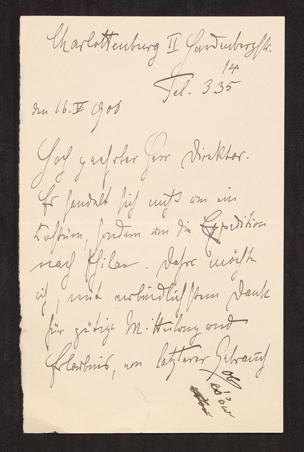 Charlottenburg II Hardenbergstr.
14
Tel. 335
den 16. V 1906
Hoch geehrter Herr Direktor.
Es handelt sich nicht um ein
sondern um die Expedition
nach Chile. Daher möchte
ich, mit verbindlichstem Dank
für gütige Mitteilung und
Erlaubnis, von letzterer Gebrauch